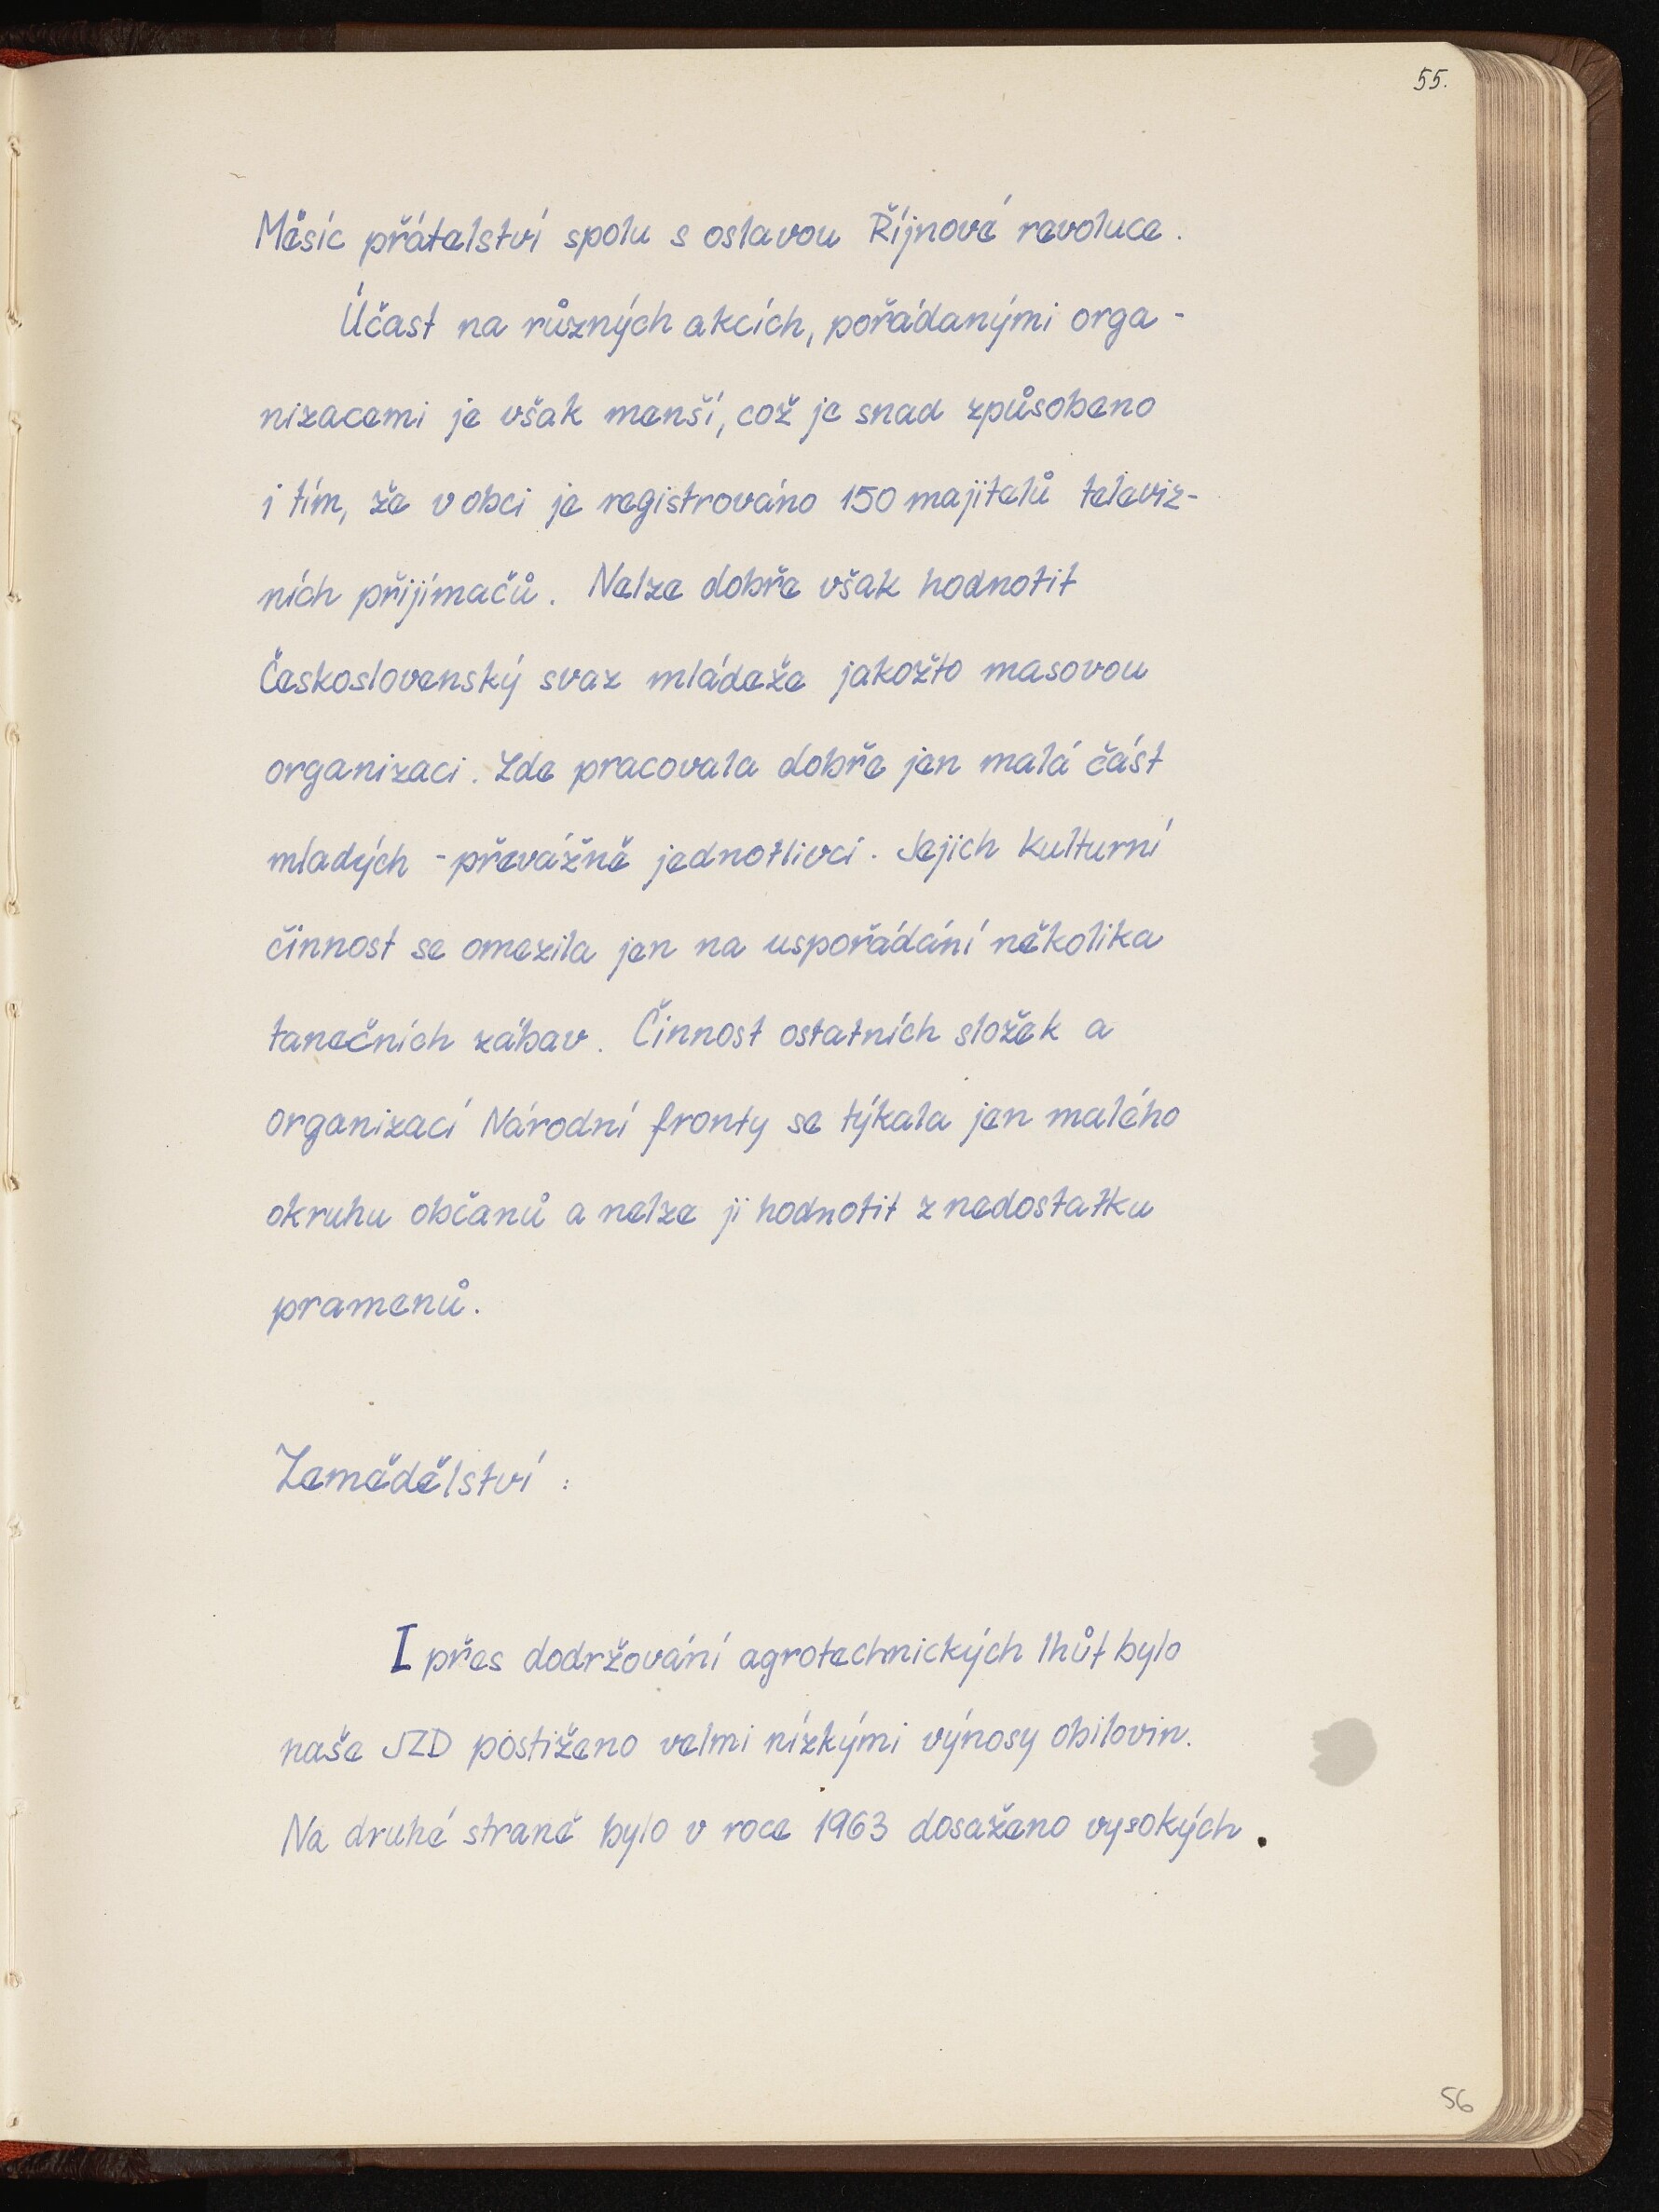 55.
Měsíc přátelství spolu s oslavou Říjnové revoluce.
Účast na různých akcích, pořádanými orga-
nizacemi je však menší, což je snad způsobeno
i tím, že v obci je registrováno 150 majitelů televiz-
ních přijímačů. Nelze dobře však hodnotit
Československý svaz mládeže jakožto masovou
organizaci. Zde pracovala dobře jen malá část
mladých - převážně jednotlivci. Jejich kulturní
činnost se omezila jen na uspořádání několika
tanečních zábav. Činnost ostatních složek a
organizací Národní fronty se týkala jen malého
okruhu občanů a nelze ji hodnotit z nedostatku
pramenů.
Zemědělství :
I přes dodržování agrotechnických lhůt bylo
naše JZD postiženo velmi nízkými výnosy obilovin.
Na druhé straně bylo v roce 1963 dosaženo vysokých.
56